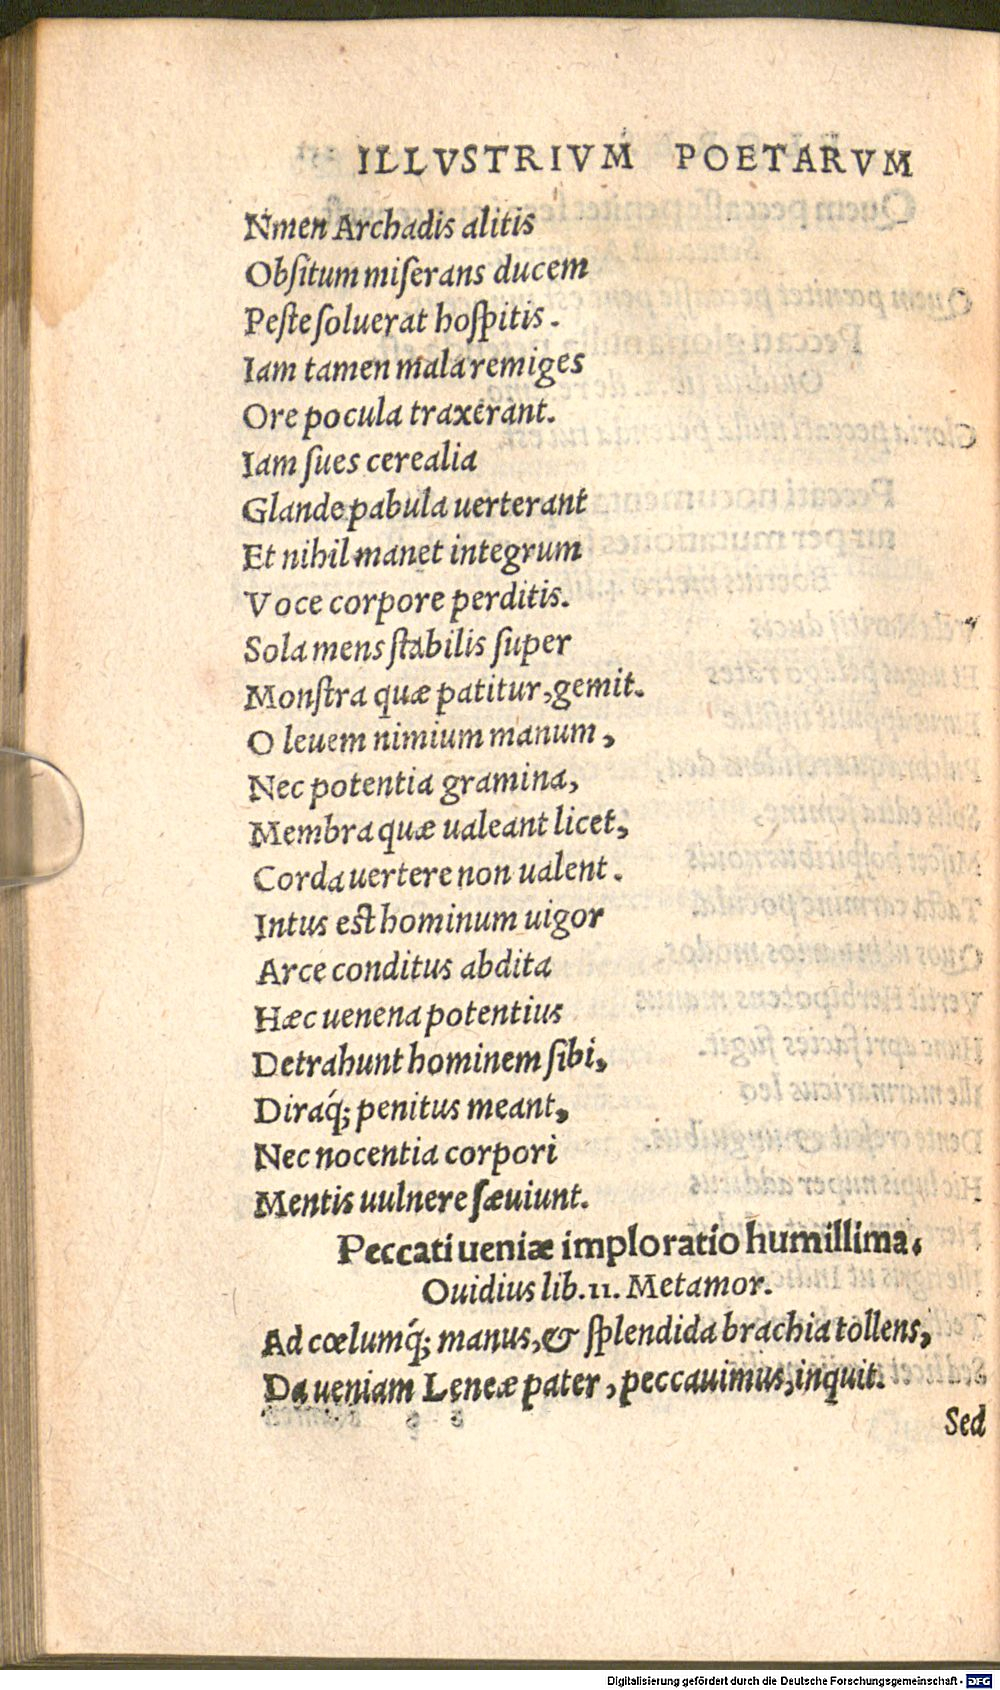 ILLVSTRIVM POETARVM
Nmen Archadis alitis
Obſitum miſerans ducem
Peſte ſoluerat hoſpitis.
Iam tamen mala remiges
Ore pocula traxerant.
Iam ſues cerealia
Glande pabula uerterant
Et nihil manet integrum
Voce corpore perditis.
Sola mens ſtabilis ſuper
Monſtra quæ patitur, gemit.
O leuem nimium manum,
Nec potentia gramina,
Membra quæ ualeant licet,
Corda uertere non ualent.
Intus eſt hominum uigor
Arce conditus abdita
Hæc uenena potentius
Detrahunt hominem ſibi,
Diraq́; penitus meant,
Nec nocentia corpori
Mentis uulnere ſæuiunt.
Peccati ueniæ imploratio humillima.
Ouidius lib. 11. Metamor.
Ad cœlumq́; manus, & ſplendida brachia tollens,
Da ueniam Lenææ pater, peccauimus, inquit.
Sed
Digitalisierung gefördert durch die Deutsche Forschungsgemeinschaft - DFG